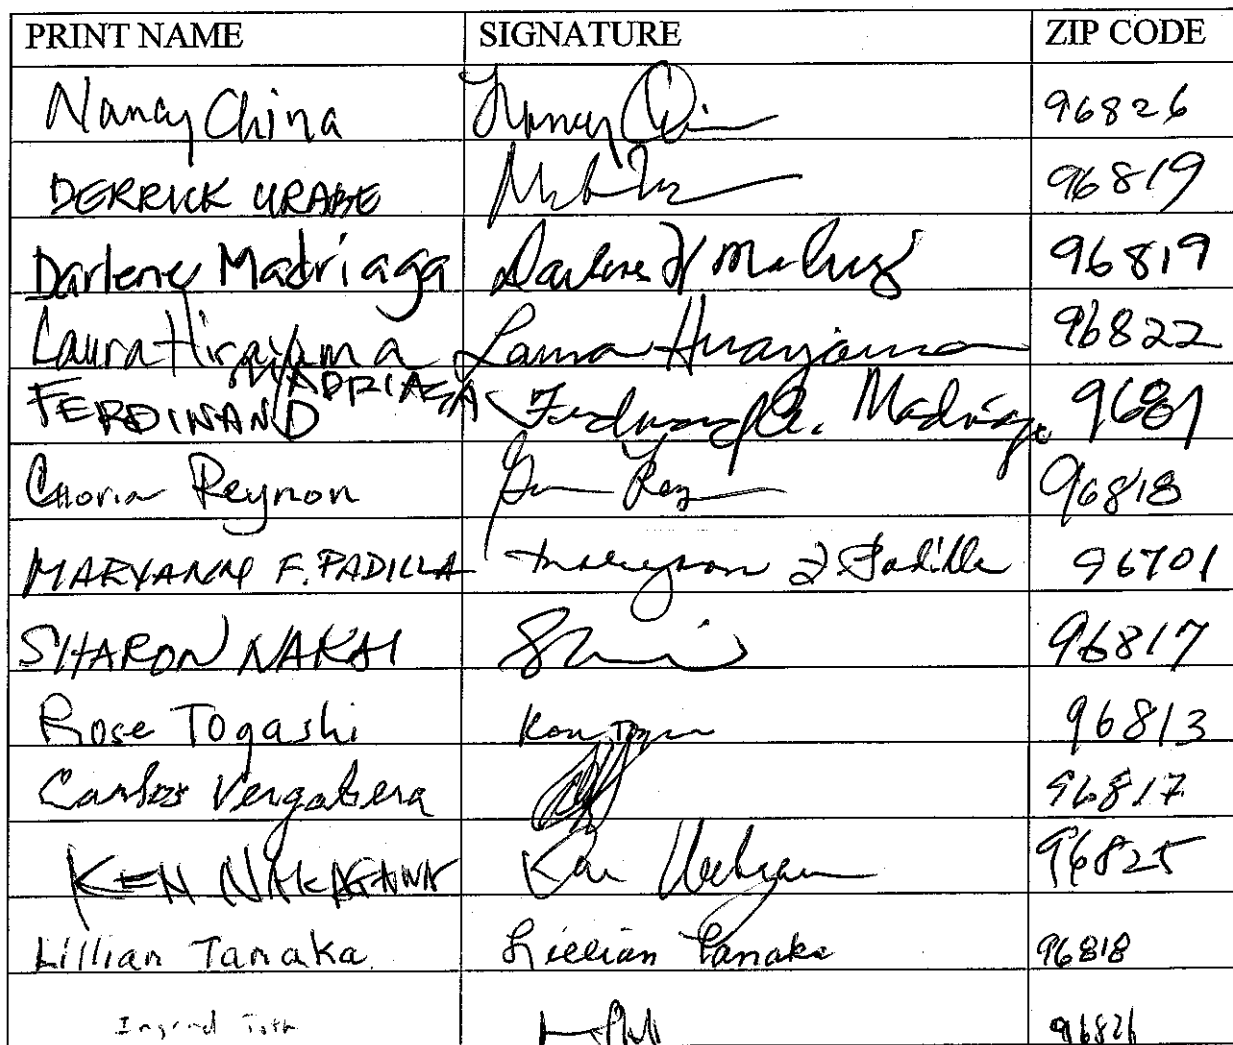 PRINT NAME SIGNATURE ZIP CODE
Nancy China Nancy 96826
DERRICK URABE 96819
Darlene Madriaga Darlene 96819
Laura Hirayama Laura Hirayama 96822
FERDINAND MADRIAGA Ferdinand Madriaga 9681
Gloria Reynon 96818
MARYANN F. PADILLA Maryann F Padilla 96701
SHARON NAKAI 96817
Rose Togashi 96813
Carlos Vergabera 96817
KEN NAKAGAWA Ken 96825
Lillian Tanaka Lillian Tanaka 96818
Ingrid 96826